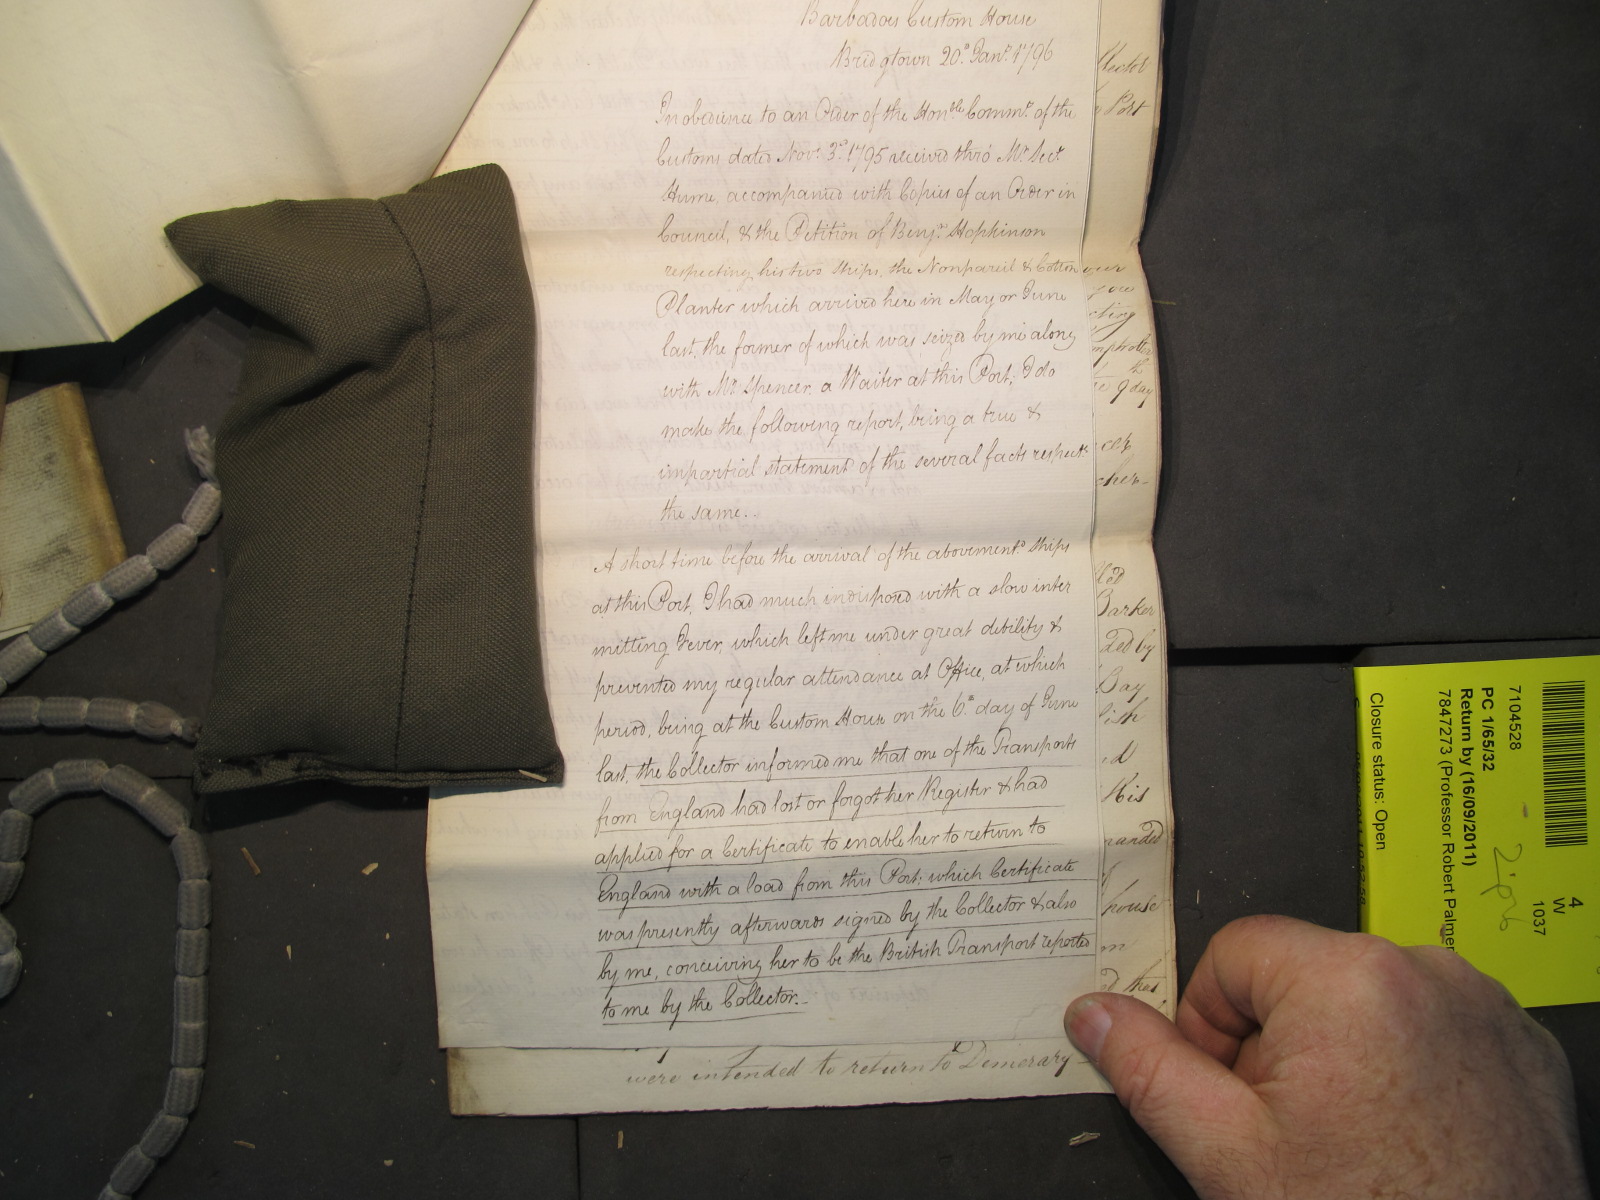 Barbadoes Custom House
Bridgtown 20.o Jany. 1796
In obedience to an Order of the Honble Commrs. of the
Customs dated Novr. 3d. 1795 received thro' Mr. Secy.
Hume, accompanied with Copies of an Order in
Council, & the Petition of Benjn. Hopkinson
respecting his two Ships, the Nonpareil & Cotton
Planter which arrived here in May or June
last, the former of which was seized by me along
with Mr. Spencer a Waiter at this Port; I do
make the following report, being a true &
impartial statement of the several facts respectg.
the same..
A short time before the arrival of the abovementd. Ships
at this Port, I had much indisposed with a slow inter
mitting Fever, which left me under great debility &
prevented my regular attendance at Office, at which
period, being at the Custom House on the 6.th day of June
last, the Collector informed me that one of the Transports
from England had lost or forgot her Register & had
applied for a Certificate to enable her to return to
England with a load from this Port; which Certificate
was presently afterwards signed by the Collector & also
by me, conceiving her to be the British Transport reported
to me by the Collector.-
were intended to return to Demerary -
llector
Port
9 day
Barker
ded by
Bay
His
house
4
W
1037
7104528
PC 1/65/32
Return by (16/09/2011)
7847273 (Professor Robert Palmer
Closure status: Open